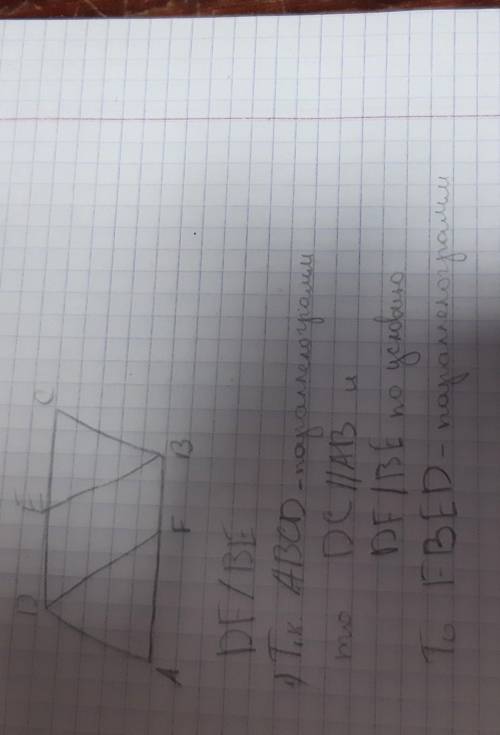 D E C
A F B
DF/BE
1) Т.к. ABCD - параллелограмм
то DC//AB и
DF/BE по условию
То FBED - параллелограмм